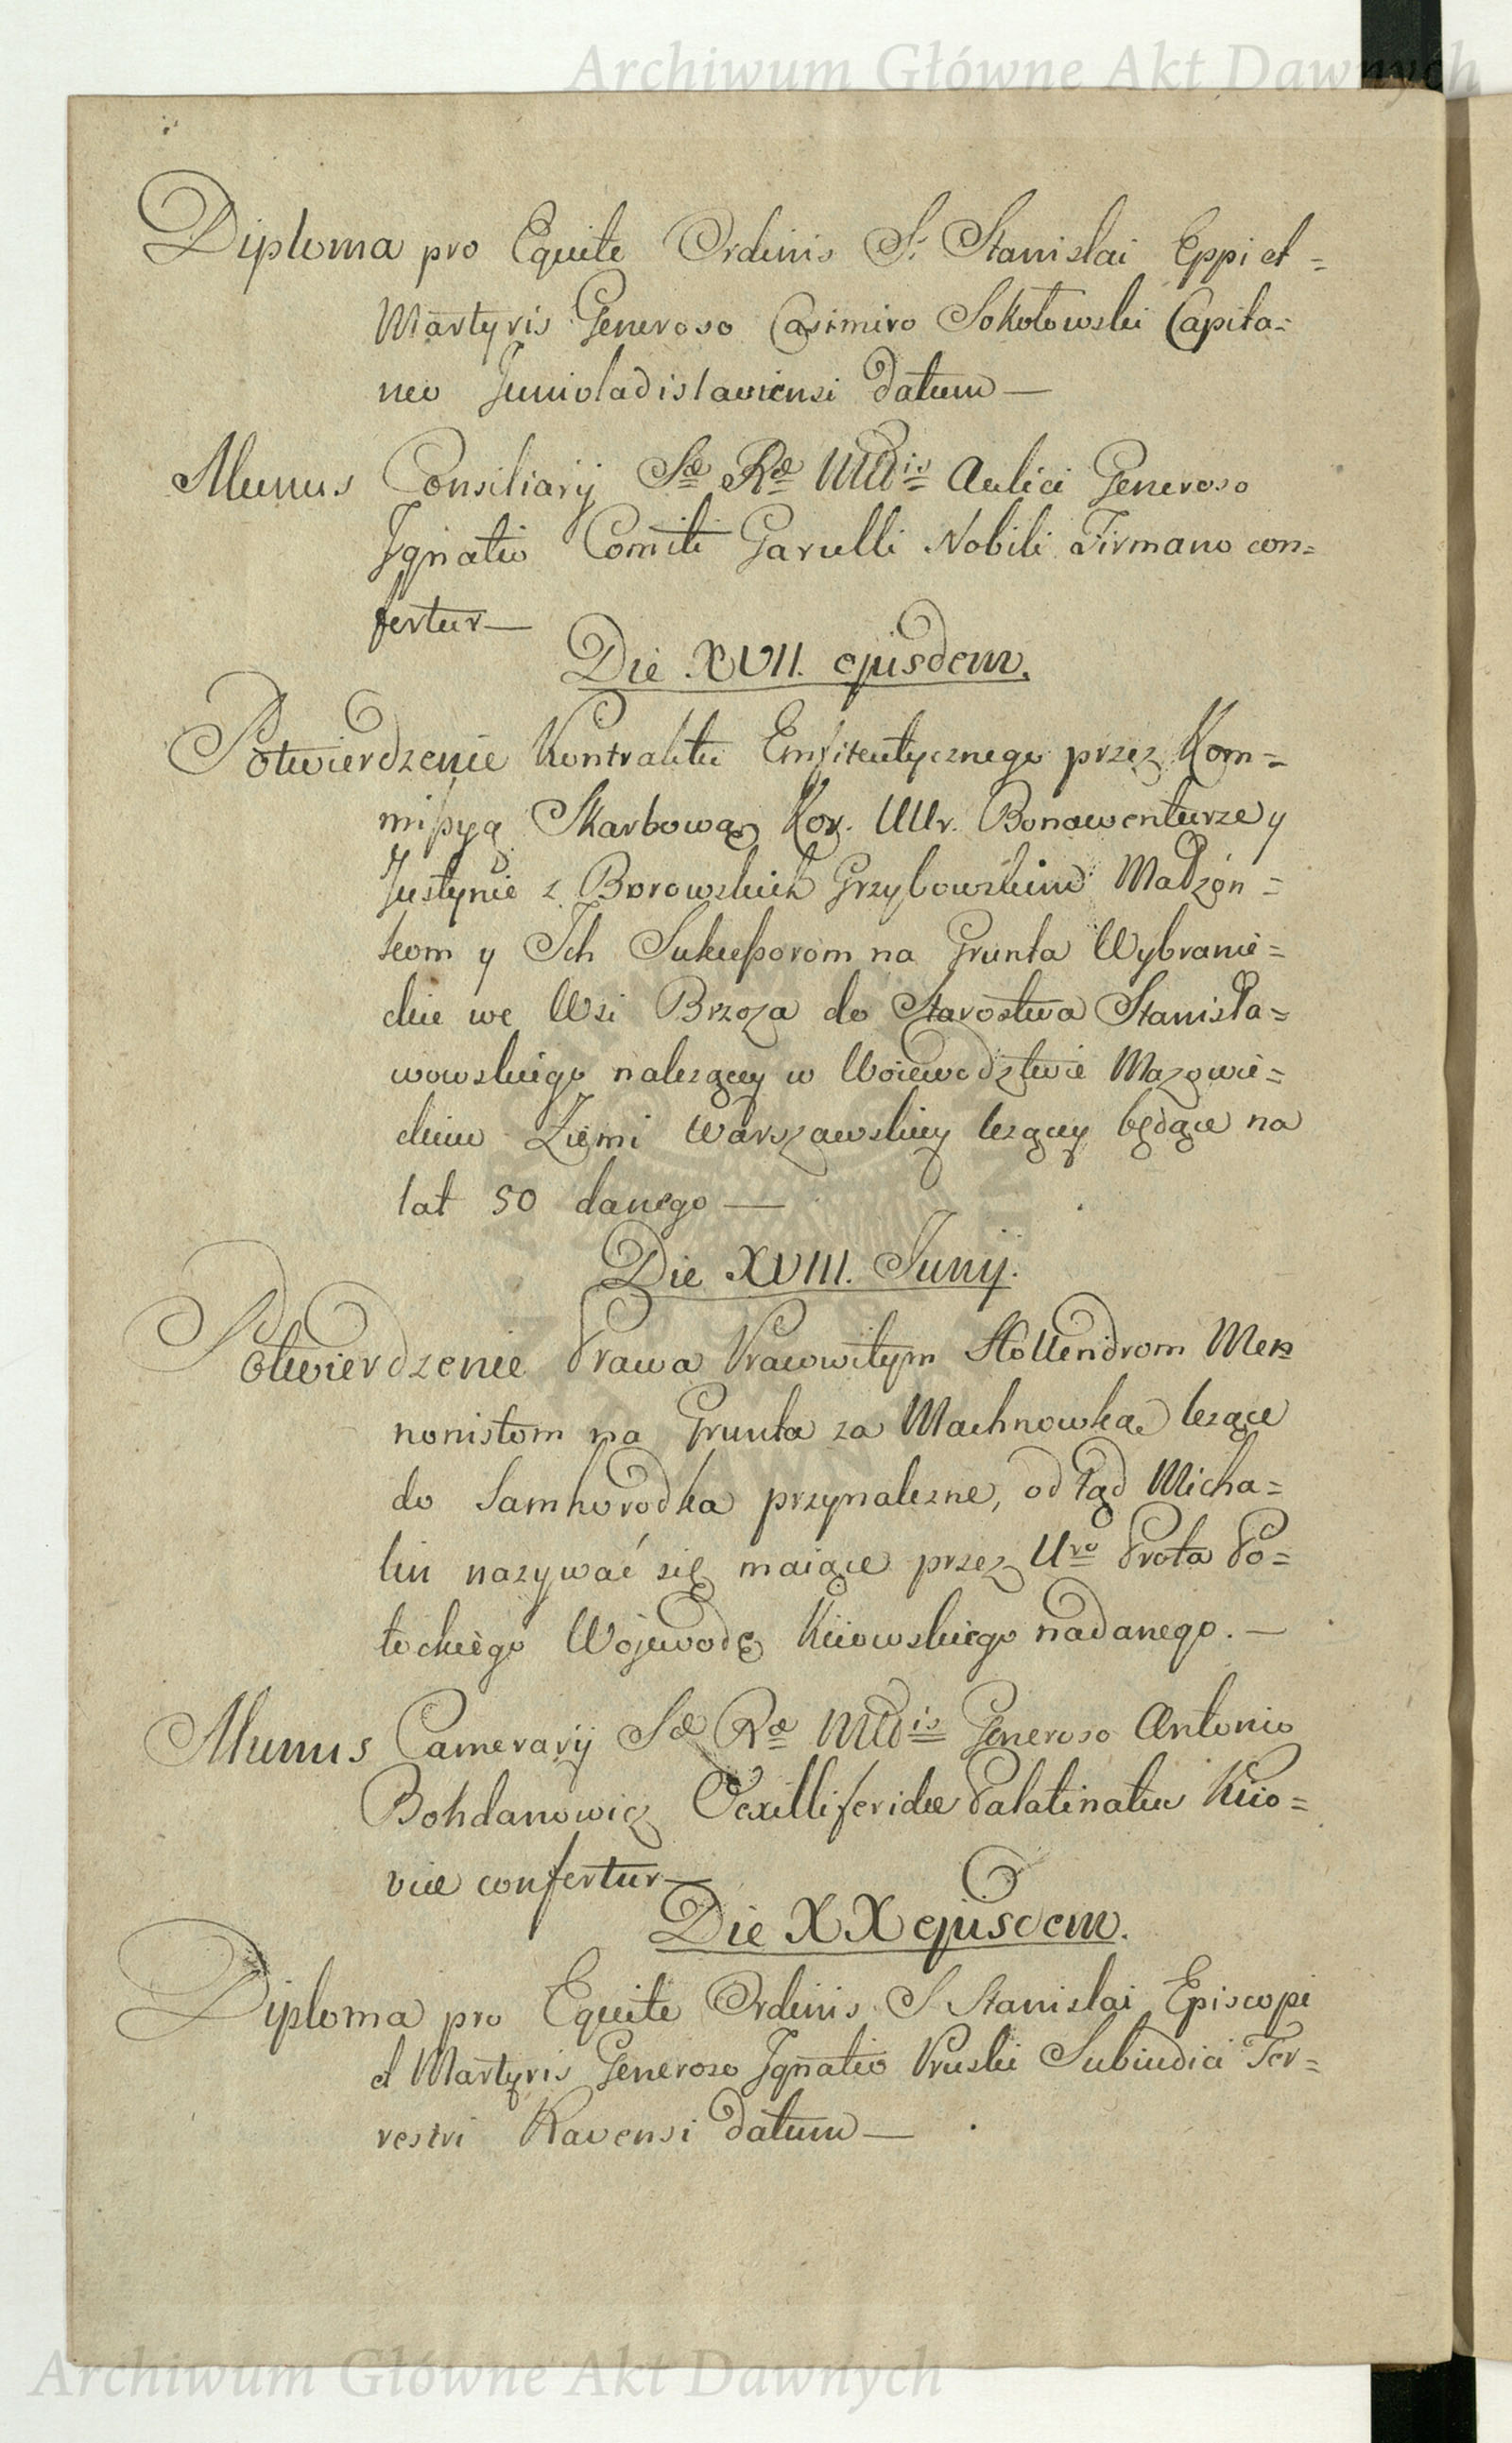 Archiwum Główne Akt Dawnych
Diploma pro Equite Ordinis S. Stanislai Eppi et=
Martyris Generoso Casimiro Sokołowski Capita=
neo Junivladislaviensi datum —
Munus Consiliarij Sæ Ræ Mttis Aulici Generoso
Ignatio Comiti Garulli Nobili Firmano con=
fertur —
Die XVII. ejusdem.
Potwierdzenie Kontraktu Emfiteutycznego przez Kom=
mißyą Skarbową Kor. UUr. Bonawenturze y
Justynie z Borowskich Grzybowskim Małżon=
kom y Ich Sukceßorom na Grunta Wybranie=
ckie we Wsi Brzoza do Starostwa Stanisła=
wowskiego należącey w Woiewodztwie Mazowie=
ckim Ziemi Warszawskiey leżącey będące na
lat 50 danego —
Die XVIII. Junij.
Potwierdzenie Prawa Prawowitym Hollendrom Men
nonistom na Grunta za Machnowką leżące
do Samhorodka przynależne, od tąd Micha=
lin nazywać się maiące przez Uro Prota Po=
tockiego Wojewodę Kiiowskiego nadanego. —
Munus Camerarij Sæ Ræ Mttis Generoso Antonio
Bohdanowicz Vexilliferidæ Palatinatus Kiio=
viæ confertur —
Die XX ejusdem.
Diploma pro Equite Ordinis S Stanislai Episcopi
et Martyris Generoso Ignatio Pruski Subiudici Ter=
restri Ravensi datum —
Archiwum Główne Akt Dawnych